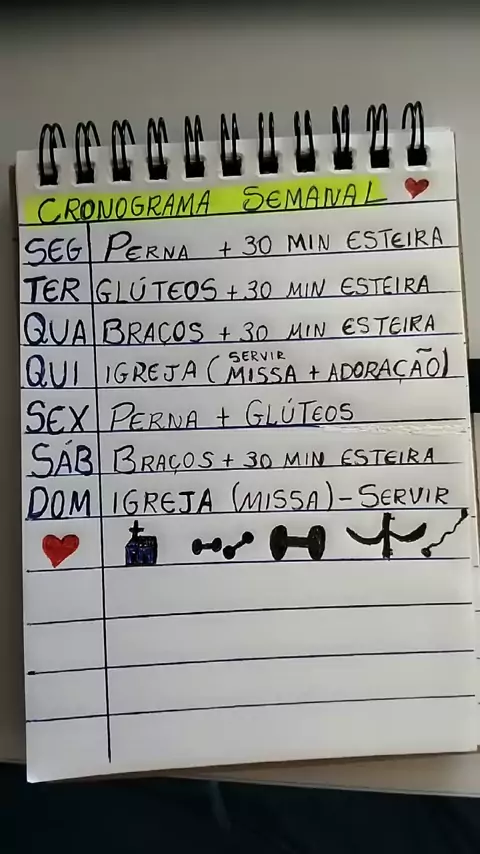 CRONOGRAMA SEMANAL
SEG PERNA + 30 MIN ESTEIRA
TER GLÚTEOS + 30 MIN ESTEIRA
QUA BRAÇOS + 30 MIN ESTEIRA
QUI IGREJA (SERVIR MISSA + ADORAÇÃO)
SEX PERNA + GLÚTEOS
SÁB BRAÇOS + 30 MIN ESTEIRA
DOM IGREJA (MISSA) - SERVIR